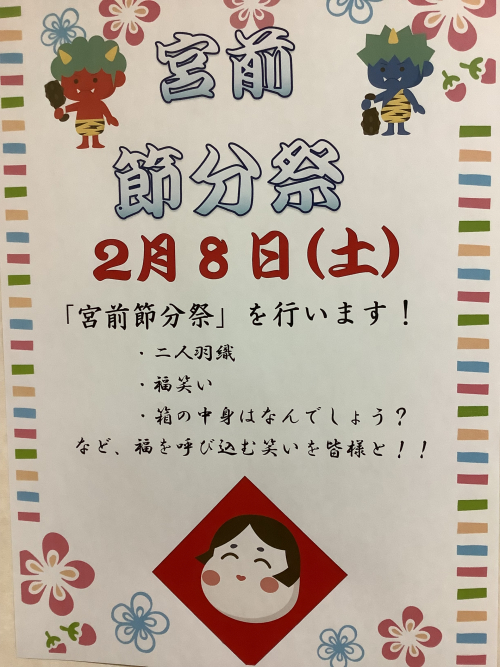 宮前
節分祭
2月8日(土)
「宮前節分祭」を行います！
・二人羽織
・福笑い
・箱の中身はなんでしょう？
など、福を呼び込む笑いを皆様と！！